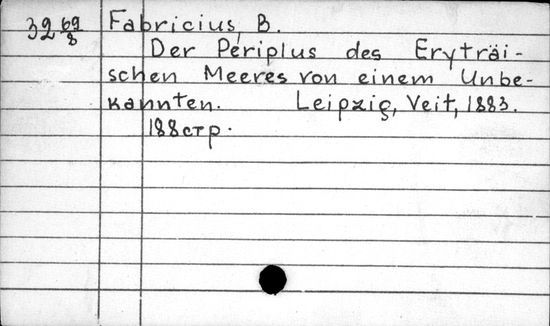 32 69/8 Fabricius, B.
Der Periplus des Eryträi-
schen Meeres von einem Unbe-
kannten. Leipzig, Veit, 1883.
188 стр.